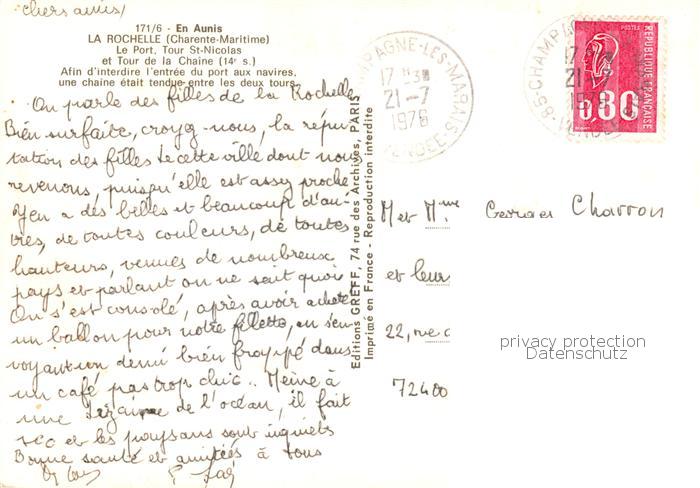 chers amis,
171/6 - En Aunis
LA ROCHELLE (Charente-Maritime)
Le Port, Tour St-Nicolas
et Tour de la Chaine (14e s.)
Afin d'interdire l'entrée du port aux navires,
une chaîne était tendue entre les deux tours.
On parle des filles de la Rochelle
Bien surfaite, croyez-nous, la répu-
tation des filles de cette ville dont nous
revenons, puisqu'elle est assez proche
Y en a des belles et beaucoup d'au-
tres, de toutes couleurs, de toutes
hauteurs, venues de nombreux
pays et parlant on ne sait quoi
On s'est consolé, après avoir acheté
un ballon pour notre fillette, en s'en
voyant un demi bien frappé dans
un café pas trop chic.. Même à
une de l'océan, il fait
sec et les paysans sont inquiets
Bonne santé et amitiés à tous
Editions GREFF, 74 rue des Archives, PARIS
Imprimé en France - Reproduction interdite
CHAMPAGNE-LES-MARAIS
17 H 3
21-7
1976
VENDEE
85 CHAMPAGNE
17 H 3
21-7
1976
VENDEE
POSTES
REPUBLIQUE FRANÇAISE
0,80
M et Mme Georges Charron
et leur
22, rue d
72400
privacy protection
Datenschutz